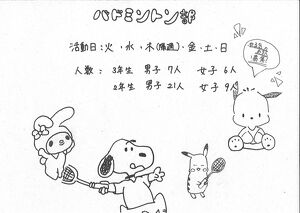 バドミントン部
活動日：火・水・木(隔週)・金・土・日
人数：3年生 男子 7人 女子 6人
2年生 男子 21人 女子 9人